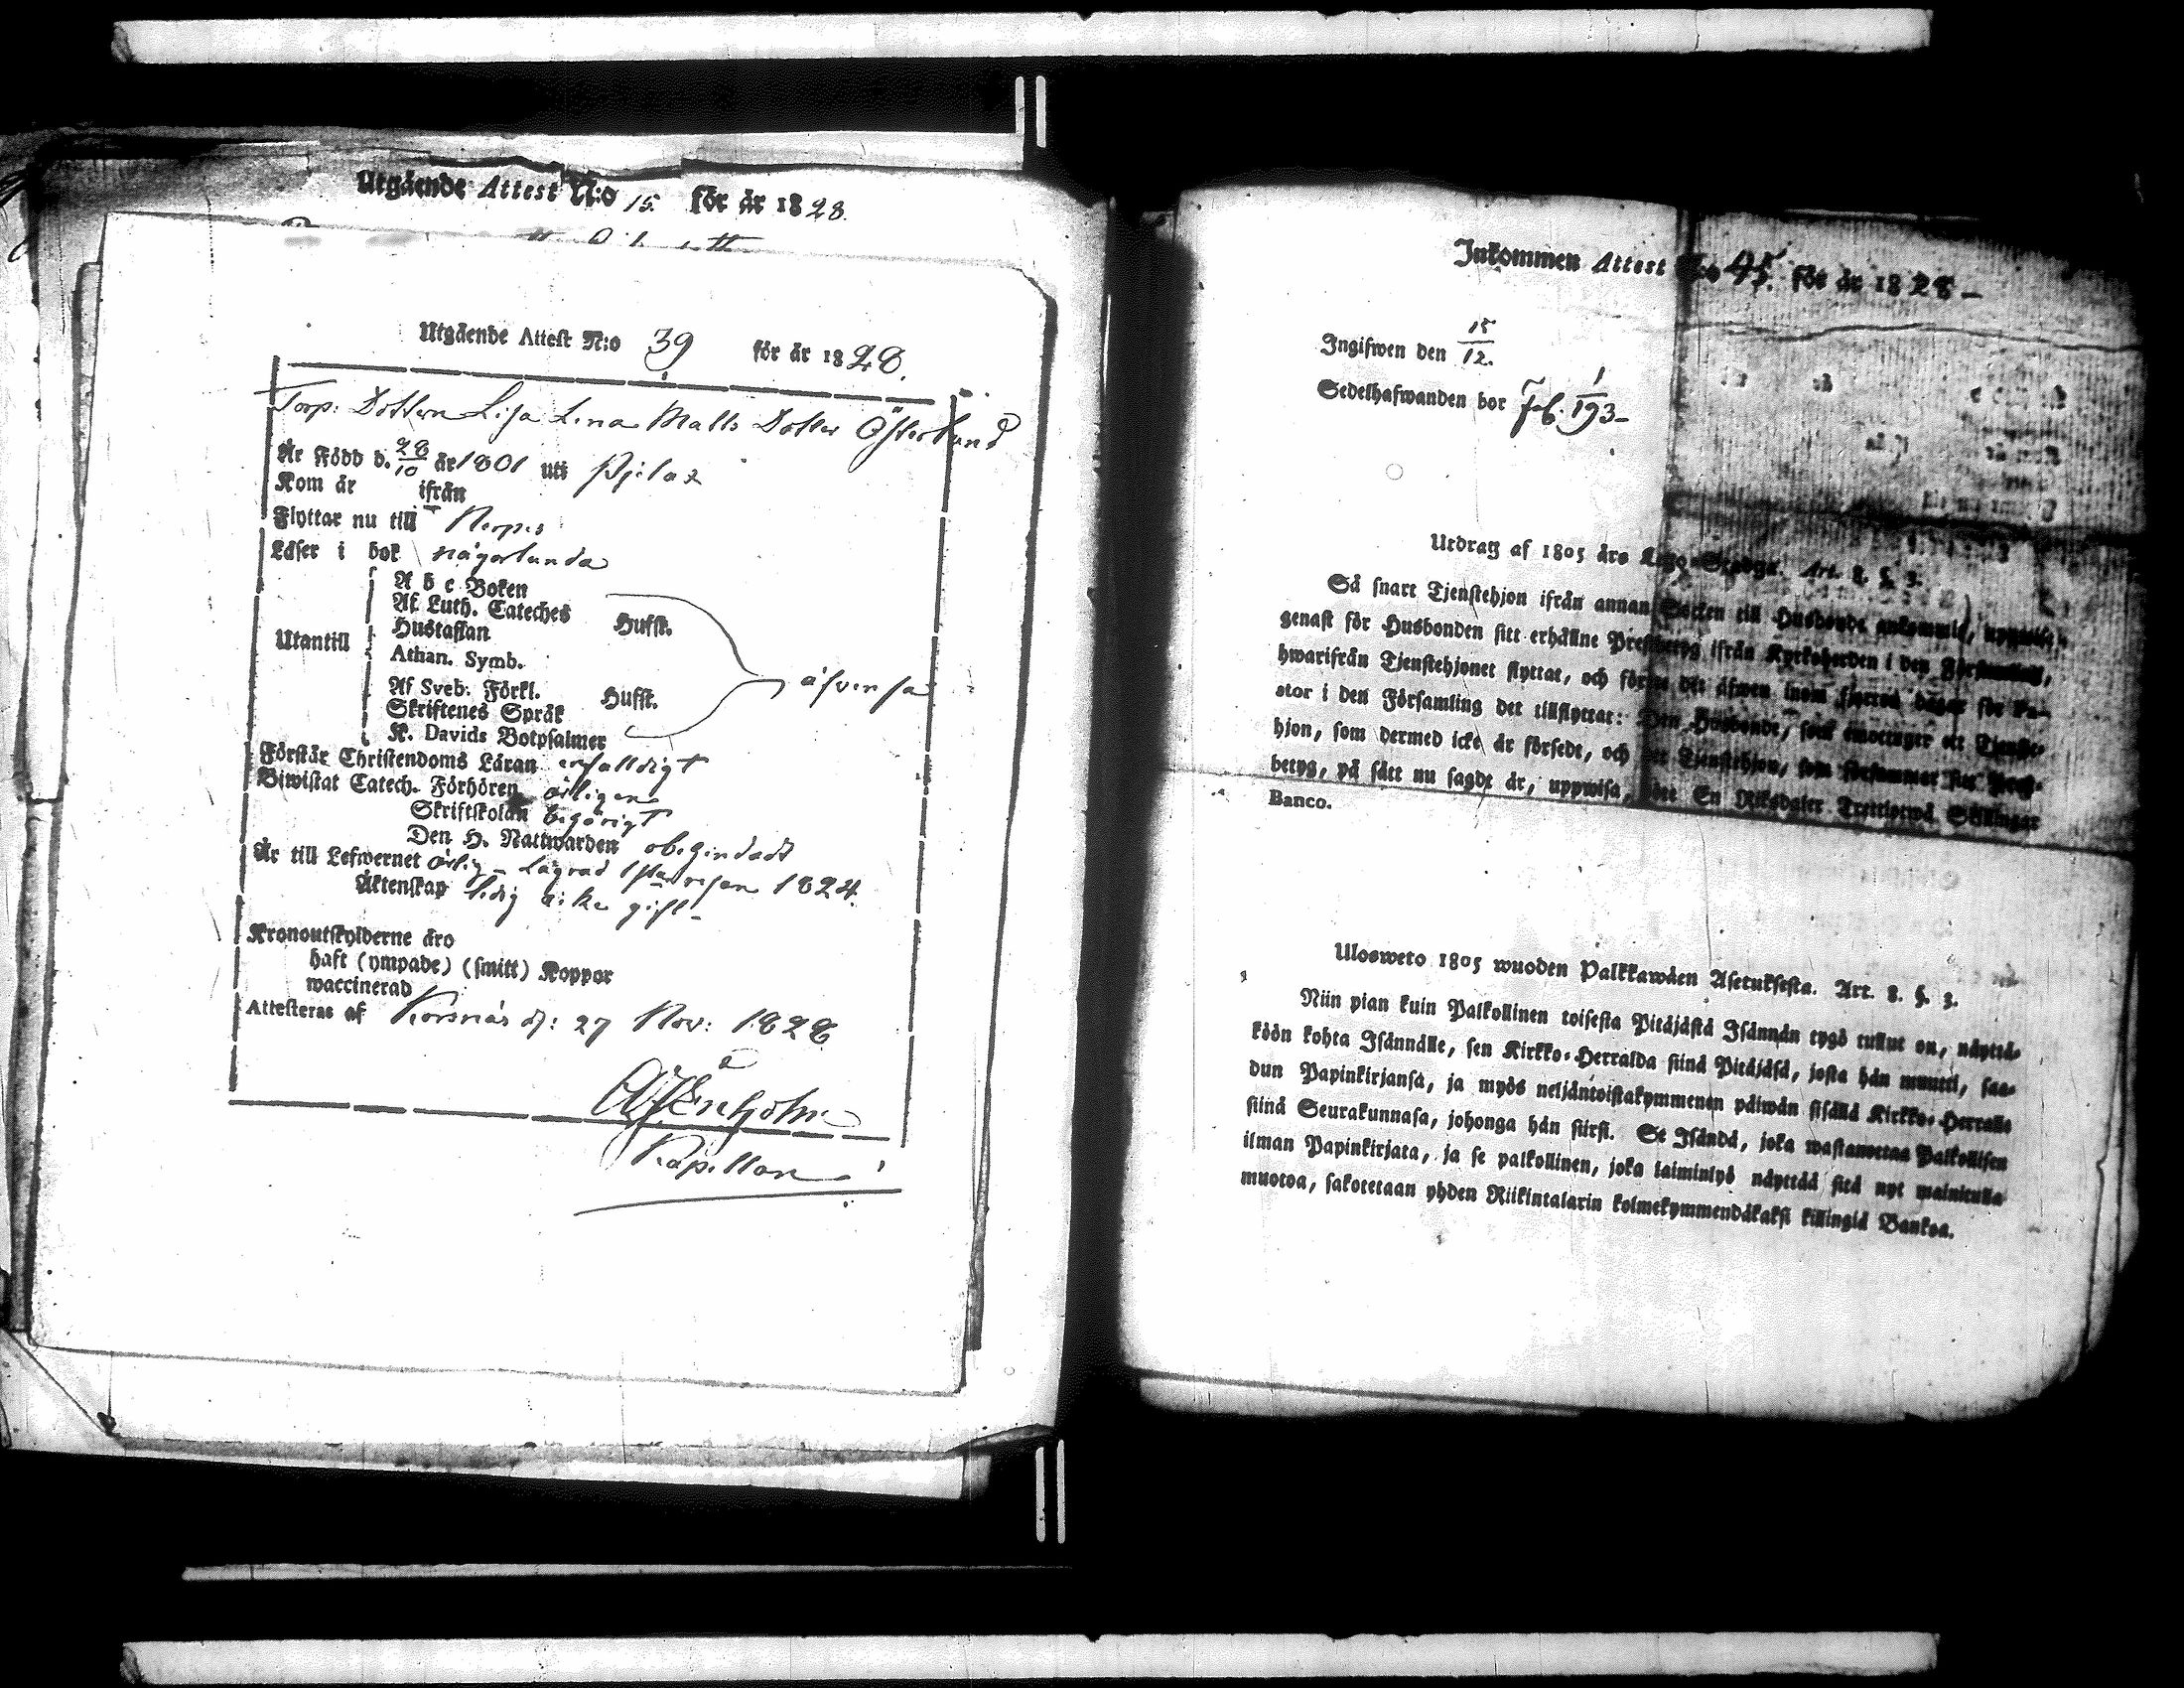 Utgående Attest N:o 15. för år 1828.
Utgående Attest N:o 39 för år 1828.
Torp: Dottern Lisa Lena Matts Dotter Österlund
Är Född d. 28/10 år 1801 uti Pjelax
Kom år ifrån
Flyttar nu till Nerpes
Läser i bok någorlunda
A b c Boken
Af Luth. Cateches
Hustaflan Husst.
Utantill
Athan. Symb.
åfvensa
Af Sveb. Förkl.
Skriftenes Språk Husst.
K. Davids Botpsalmer
Förstår Christendoms Läran enfalldigt
Biwistat Catech. Förhören årligen
Skriftskolan behörigt
Den H. Nattwarden obehindradt
Är till Lefwernet ärlig - lägrad 1sta resan 1824.
Äktenskap ledig icke gift -
Kronoutskylderne äro
haft (ympade) (smitt) Koppor
waccinerad
Attesteras af Korsnäs d: 27 Nov: 1828
Kapellan
Inkommen Attest N:o 45. för år 1828 -
Ingifwen den 15/12.
Sedelhafwanden bor
193 -
Utdrag af 1805 års Lego-Stadga. Art. 8. §. 3.
Så snart Tjenstehjon ifrån annan Socken till Husbonde ankommit, uppwise
genast för Husbonden sitt erhållne Prestbetyg ifrån Kyrkoherden i den Församling,
hwarifrån Tjenstehjonet flyttat, och förete det äfwen inom fjorton dagar för Pa-
stor i den Församling det tillflyttat: Den Husbonde, som emottager ett Tjenste-
hjon, som dermed icke är försedt, och ett Tjenstehjon, som försummar sitt Prest-
betyg, på sätt nu sagdt är, uppwisa, böte En Riksdaler Trettiotwå Skillingar
Banco.
Ulosweto 1805 wuoden Palkkawäen Asetuksesta. Art. 8. §. 3.
Niin pian kuin Palkollinen toisesta Pitäjästä Isännän tygö tullut on, näyttä-
köön kohta Isännälle, sen Kirkko-Herralda siinä Pitäjäsä, josta hän muutti, saa-
dun Papinkirjansa, ja myös neljäntoistakymmenen päiwän sisällä Kirkko-Herralle
siinä Seurakunnasa, johonga hän siirsi. Se Isändä, joka wastanottaa Palkollisen
ilman Papinkirjata, ja se palkollinen, joka laiminlyö näyttää sitä nyt mainitulla
muotoa, sakotetaan yhden Riikintalarin kolmekymmendäkaksi killingiä Bankoa.